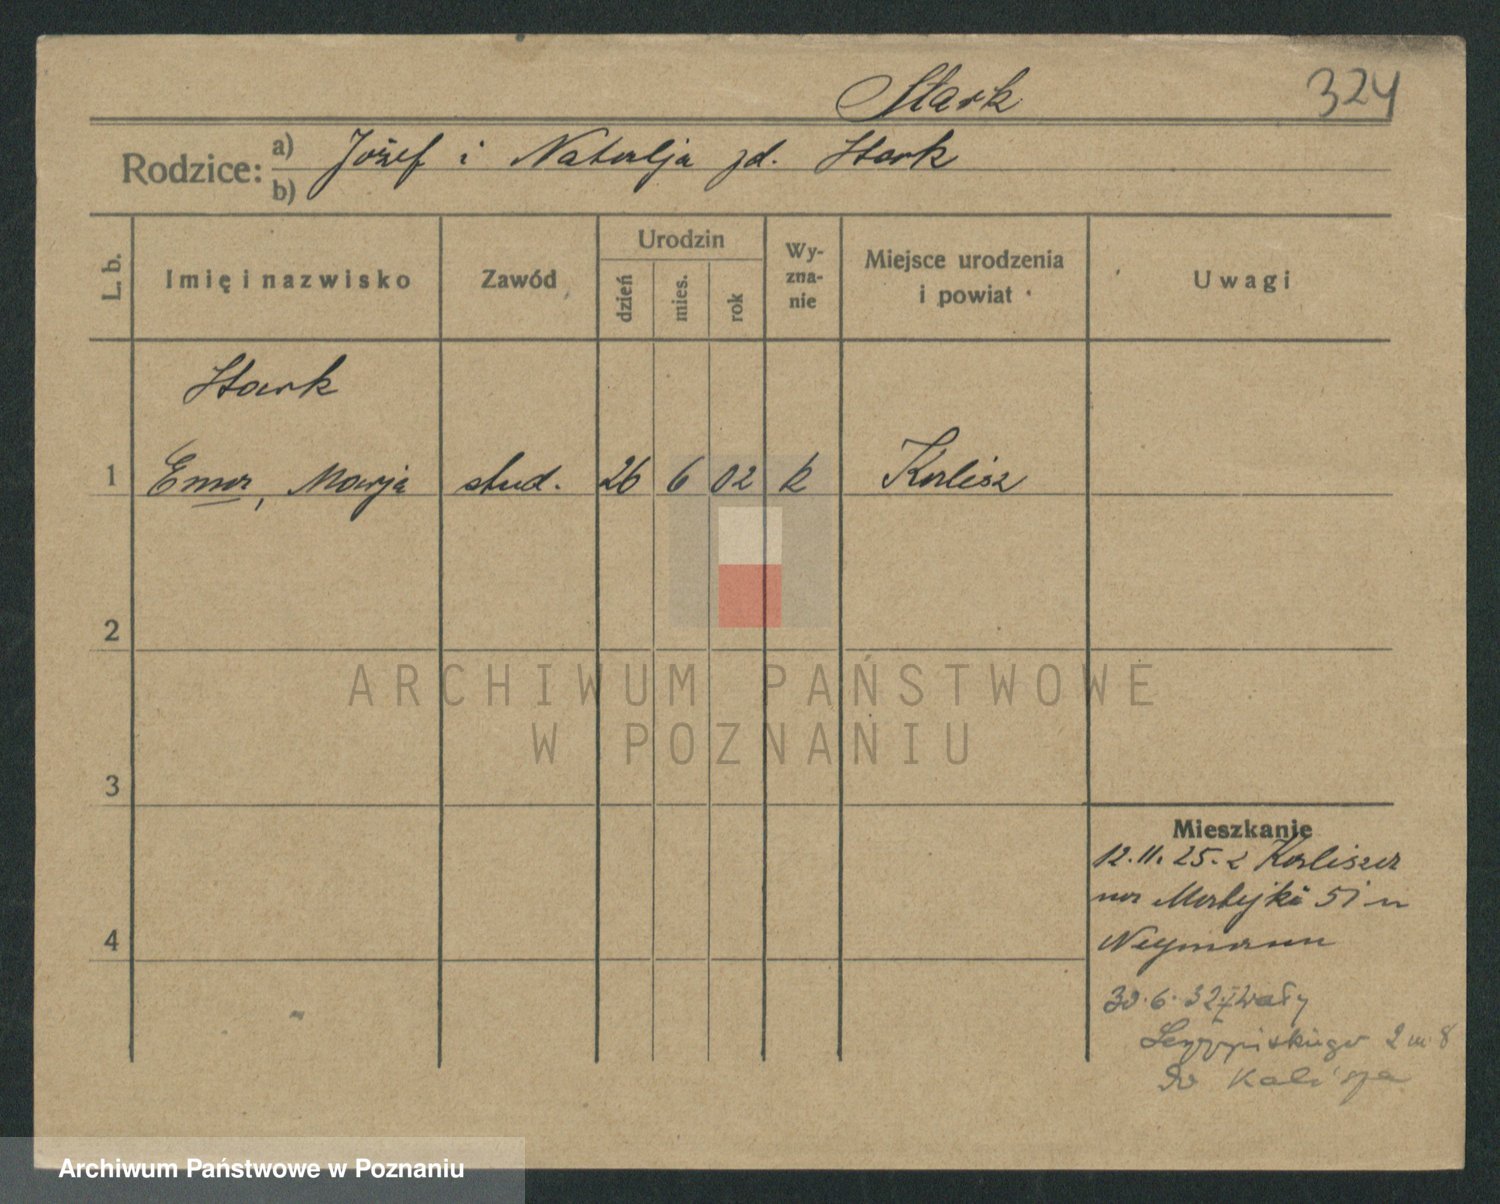 Stark
324
Rodzice: a) Józef i Natalja zd. Stark
b)
L. b.
Imię i nazwisko
Zawód
Urodzin
dzień
mies.
rok
Wy-
zna-
nie
Miejsce urodzenia
i powiat
Uwagi
Stark
1 Ema, Marja stud. 26 6 02 k Kalisz
2
3
4
Mieszkanie
12.11.25. z Kalisza
na Matejki 51
Neymann
30.6.32 Wały
2 m 8
Do Kalisza
ARCHIWUM PAŃSTWOWE
W POZNANIU
Archiwum Państwowe w Poznaniu